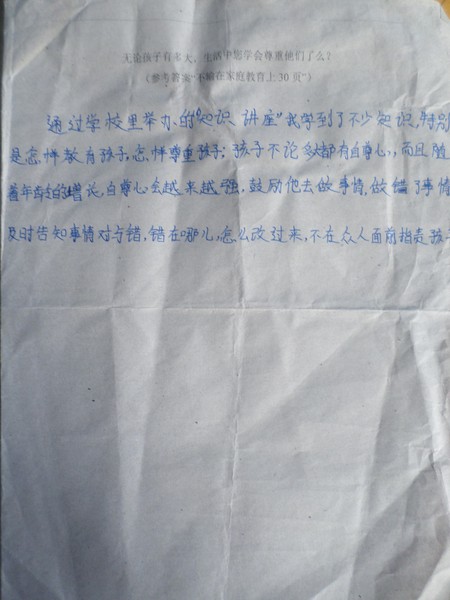 无论孩子有多大，生活中您学会尊重他们了么？
（参考答案“不输在家庭教育上30页”）
通过学校里举办的“知识讲座”我学到了不少知识，特别
是怎样教育孩子，怎样尊重孩子；孩子不论多大都有自尊心，而且随
着年龄的增长，自尊心会越来越强，鼓励他去做事情，做错了事情
及时告知事情对与错，错在哪儿，怎么改过来，不在众人面前指责孩子